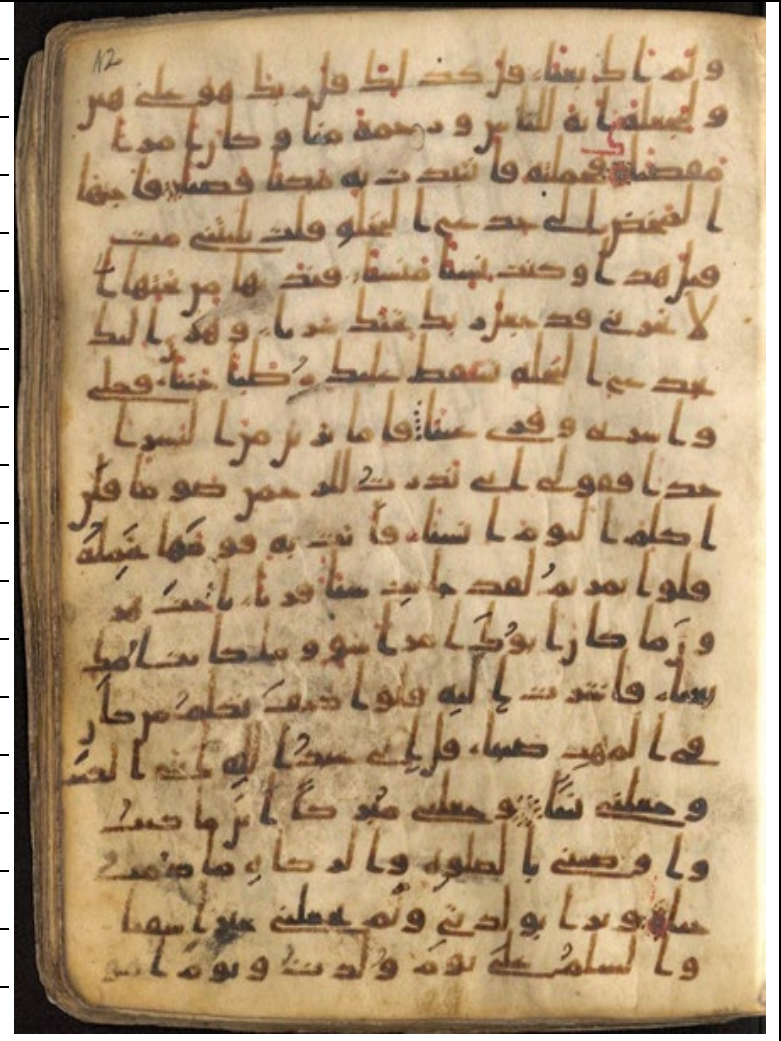 12
و لم اك بغيا قل كذلك قل ربك هو على هين
و لنجعله اية للناس و رحمة منا و كان امرا
مقضيا فحملته فانتبذت به مكنا قصيا فاجاها
المخض الى جذع النخلة قلت يليتنى مت
قبل هذا و كنت نسيا منسيا فنديها من تحتها ا
لا تحزنى قد جعل ربك تحتك سريا و هزى اليك
بجذع النخلة تسقط عليك رطبا جنيا فكلى
و اشربى و قرى عينا فاما ترين من البشر ا
حدا فقولى انى نذرت للرحمن صوما فلن
اكلم اليوم انسيا فاتت به قومها تحمله
قلوا يمريم لقد جيت شيا فريا ياخت هر
ون ما كان ابوك امرا سو و ما كانت امك
بغيا فاشرت اليه قلوا كيف نكلم من كان
فى المهد صبيا قل انى عبد الله اتنى الكتب
و جعلنى نبيا و جعلنى مبركا اين ما كنت
و اوصنى بالصلوة و الزكوة ما دمت
حيا و برا بولدتى و لم يجعلنى جبرا شقيا
و السلم على يوم ولدت و يوم اموت